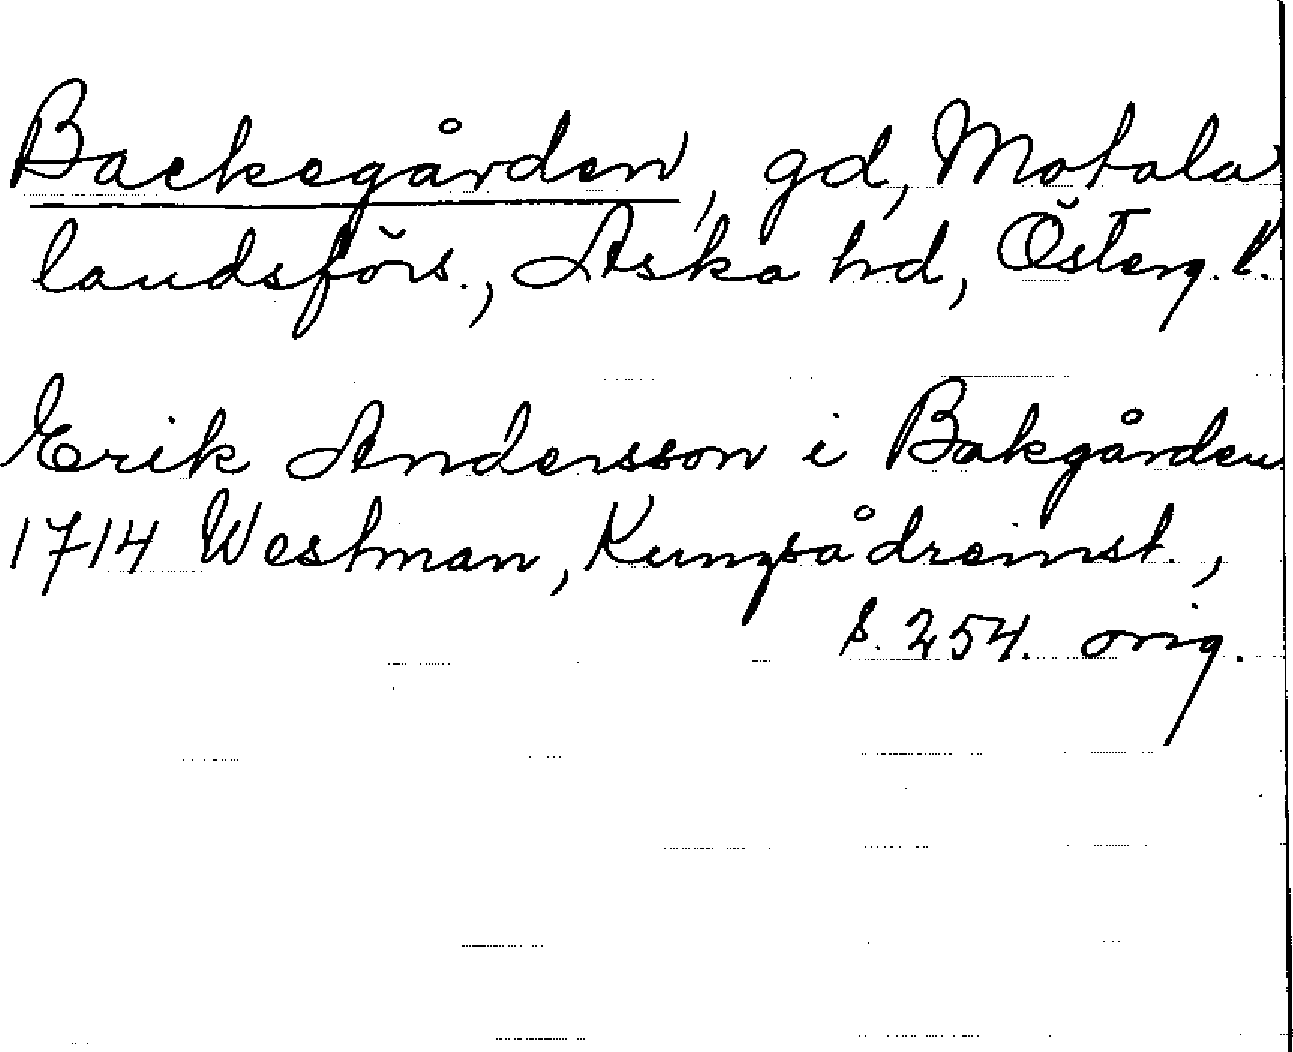 Backegården, gd, Motala
landsförs., Aska hd, Österg. l.
Erik Andersson i Bakgården
1714 Westman, Kungsådreinst.,
s. 254. orig.